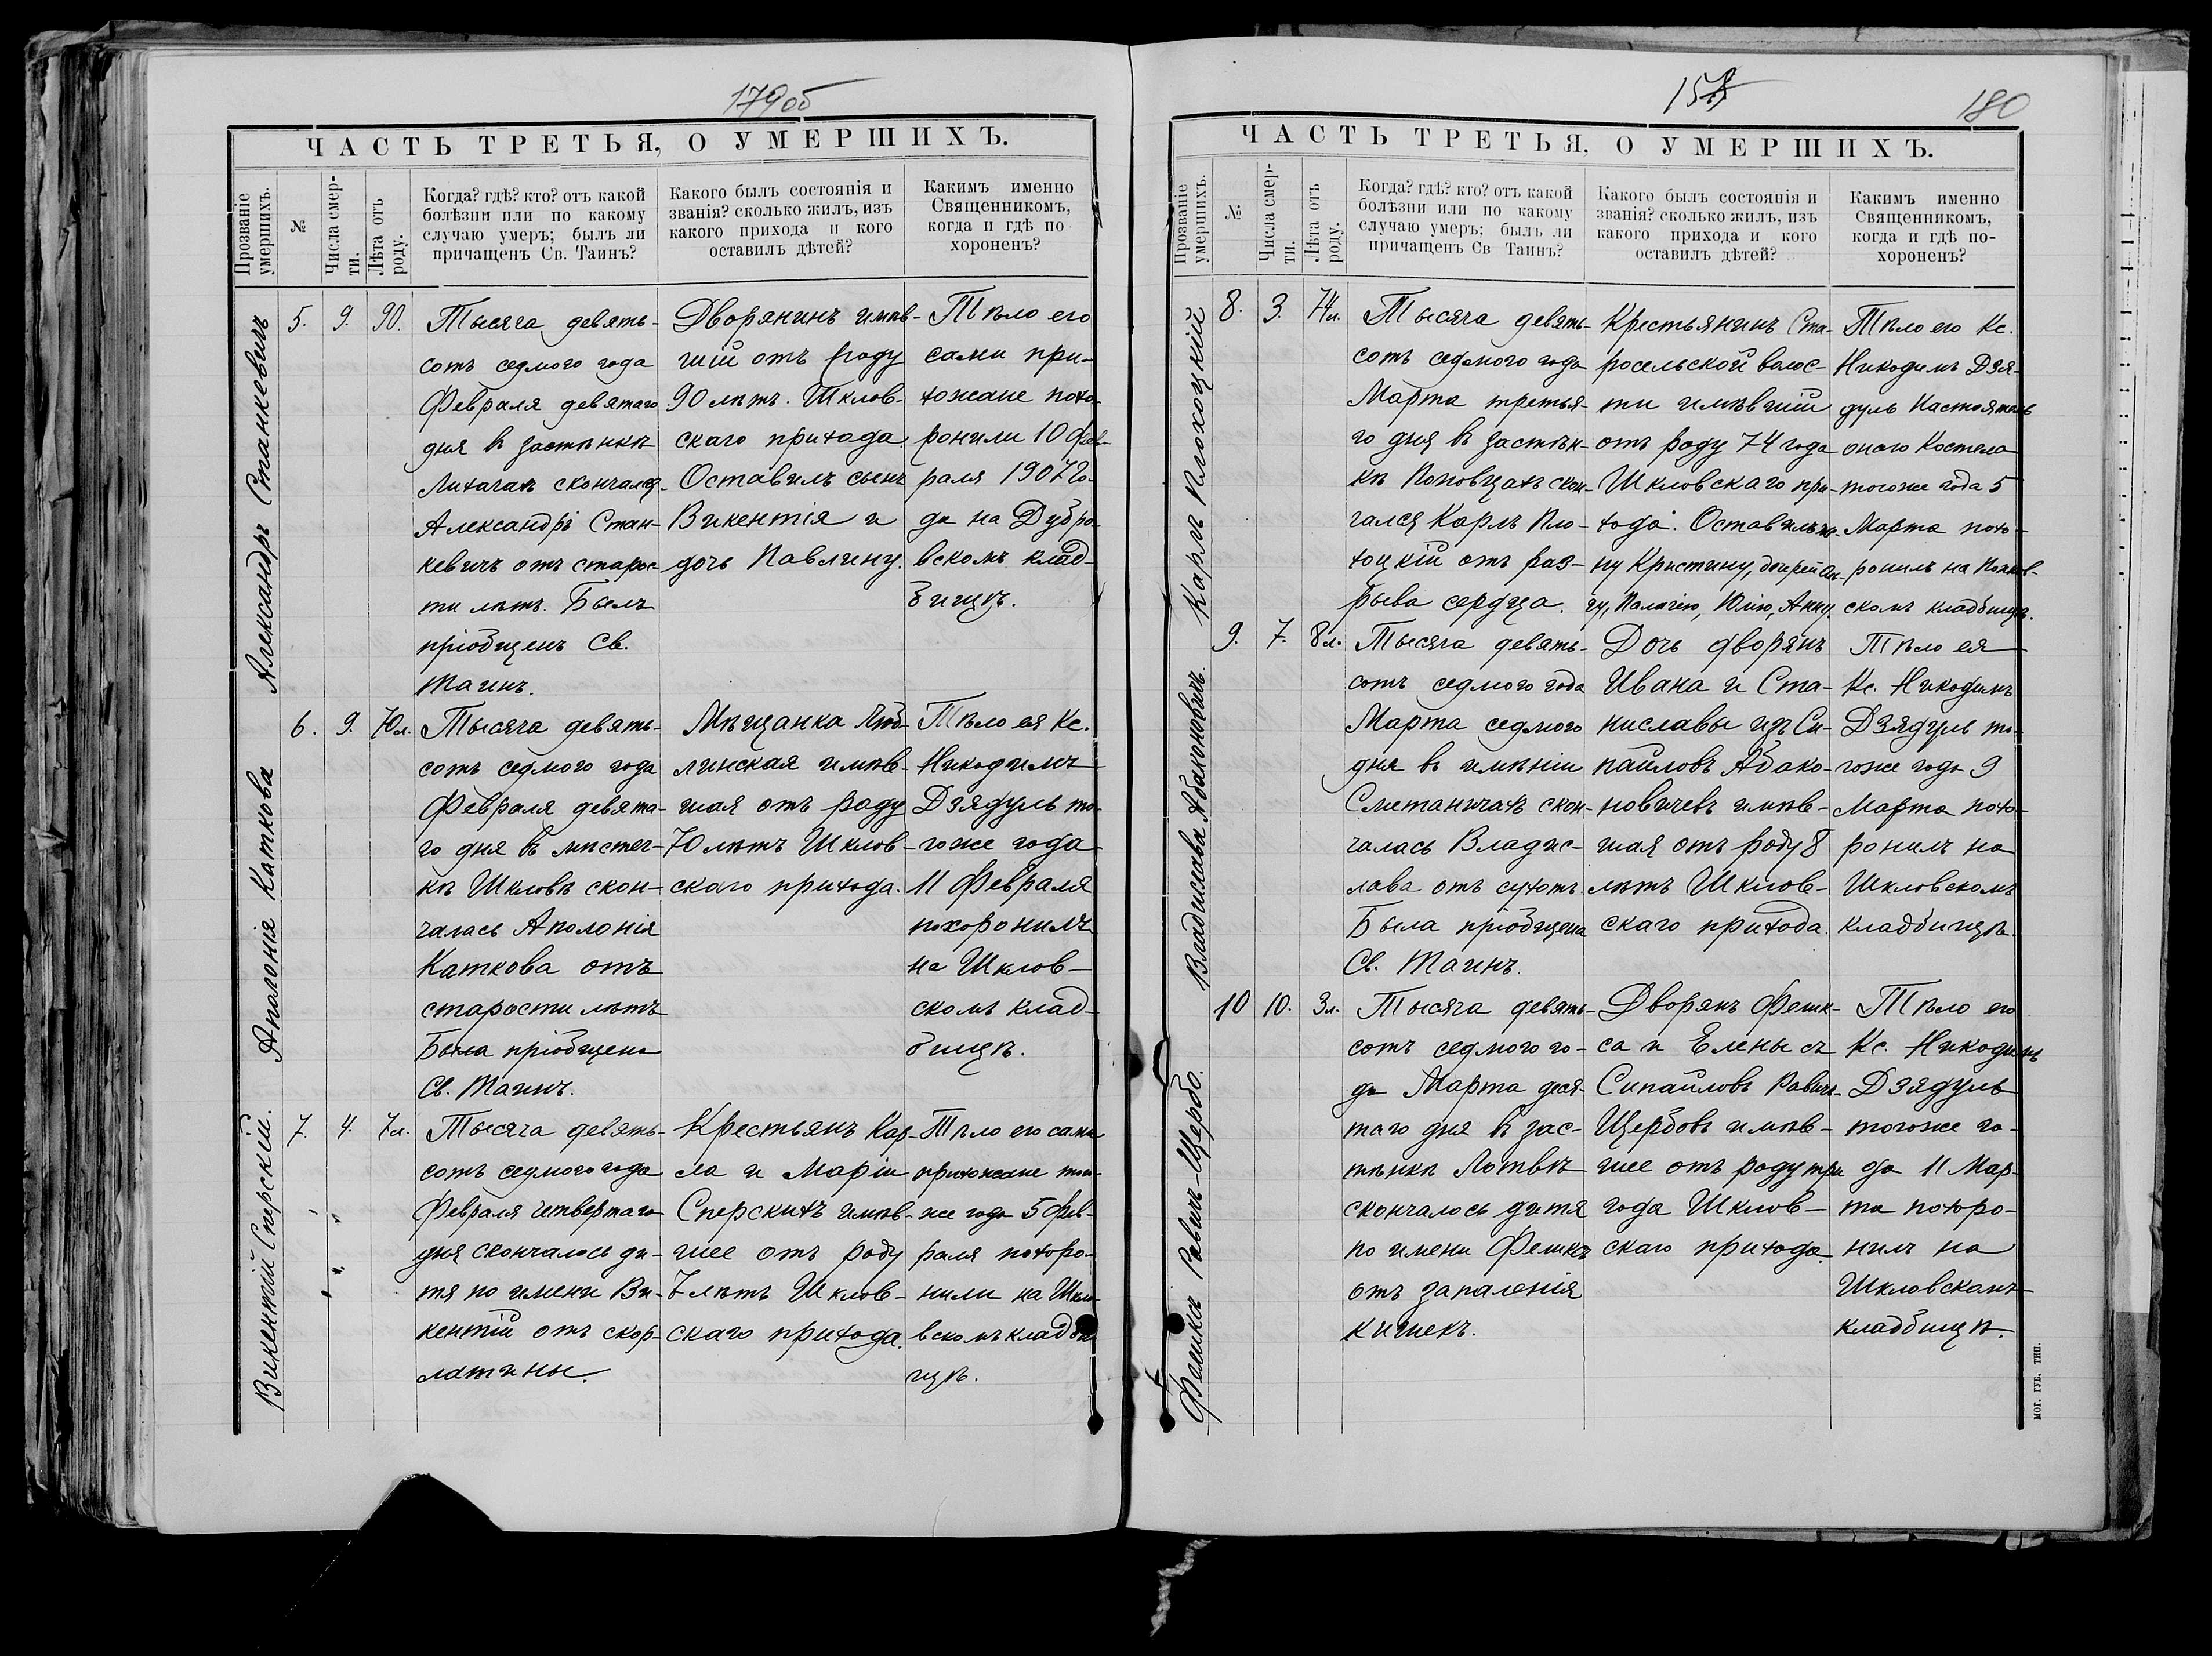 179об
ЧАСТЬ ТРЕТЬЯ, О УМЕРШИХЪ.
Прозваніе умершихъ.
№
Числа смер-
ти.
Лѣта отъ
роду.
Когда? гдѣ? кто? отъ какой
болѣзни или по какому
случаю умеръ; былъ ли
причащенъ Св. Таинъ?
Какого былъ состоянія и
званія? сколько жилъ, изъ
какого прихода и кого
оставилъ дѣтей?
Какимъ именно
Священникомъ,
когда и гдѣ по-
хороненъ?
Александръ Станкевичъ
5.
9.
90.
Тысяча девять-
сотъ седмого года
Февраля девятаго
дня въ застѣнкѣ
Лихачахъ скончался
Александръ Стан-
кевичъ отъ старос-
ти лѣтъ. Былъ
пріобщенъ Св.
Таинъ.
Дворянинъ имѣв-
шій отъ роду
90 лѣтъ. Шклов-
скаго прихода
Оставилъ сына
Викентія и
дочь Павлину.
Тѣло его
сами при-
хожане похо-
ронили 10 Фев-
раля 1907 го-
да на Дубро-
вскомъ клад-
бищѣ.
Аполонія Каткова
6.
9.
70л.
Тысяча девять-
сотъ седмого года
Февраля девята-
го дня въ мѣстеч-
кѣ Шкловѣ скон-
чалась Аполонія
Каткова отъ
старости лѣтъ
Была пріобщена
Св. Таинъ.
Мѣщанка
линская имѣв-
шая отъ роду
70 лѣтъ Шклов-
скаго прихода.
Тѣло ея Кс.
Никодимъ
Дзядуль то-
гоже года
11 Февраля
похоронилъ
на Шклов-
скомъ клад-
бищѣ.
Викентій Сперскій.
7.
4.
7л.
Тысяча девять-
сотъ седмого года
Февраля четвертаго
дня скончалось ди-
тя по имени Ви-
кентій отъ скор-
латины.
Крестьянъ Кар-
ла и Маріи
Сперскихъ имѣв-
шее отъ роду
7 лѣтъ Шклов-
скаго прихода.
Тѣло его сами
прихожане того-
же года 5 Фев-
раля похоро-
нили на Шкло-
вскомъ кладби-
щѣ.
180
ЧАСТЬ ТРЕТЬЯ, О УМЕРШИХЪ.
Прозваніе умершихъ.
№
Числа смер-
ти.
Лѣта отъ
роду.
Когда? гдѣ? кто? отъ какой
болѣзни или по какому
случаю умеръ; былъ ли
причащенъ Св Таинъ?
Какого былъ состоянія и
званія? сколько жилъ, изъ
какого прихода и кого
оставилъ дѣтей?
Какимъ именно
Священникомъ,
когда и гдѣ по-
хороненъ?
Карлъ Плохоцкій
8.
3.
74л.
Тысяча девять-
сотъ седмого года
Марта третья-
го дня въ застѣн-
кѣ Поповщахъ скон-
чался Карлъ Пло-
хоцкій отъ раз-
рыва сердца.
Крестьянинъ Ста-
росельской волос-
ти имѣвшій
отъ роду 74 года
Шкловскаго при-
хода. Оставилъ же-
ну Кристину, дочерей Ан-
ну, Палагію, Юлію, Анну.
Тѣло его Кс.
Никодимъ Дзя-
дуль Настоятель
оного Костела
тогоже года 5
Марта похо-
ронилъ на
скомъ кладбищѣ.
Владислава Абаконовичъ.
9.
7.
8л.
Тысяча девять-
сотъ седмого года
Марта седмого
дня въ имѣніи
Сметаничахъ скон-
чалась Владис-
лава отъ сухотъ.
Была пріобщена
Св. Таинъ.
Дочь дворянъ
Ивана и Ста-
ниславы изъ Си-
пайловъ Абако-
новичевъ имѣв-
шая отъ роду 8
лѣтъ Шклов-
скаго прихода.
Тѣло ея
Кс. Никодимъ
Дзядуль то-
гоже года 9
Марта похо-
ронилъ на
Шкловскомъ
кладбищѣ.
Феликсъ Равичъ-Щербо.
10
10.
3л.
Тысяча девять-
сотъ седмого го-
да Марта деся-
таго дня въ зас-
тѣнкѣ Лотвѣ
скончалось дитя
по имени Феликсъ
отъ запаленія
кишекъ.
Дворянъ Фелик-
са и Елены съ
Сипайловъ Равичъ-
Щербовъ имѣв-
шее отъ роду три
года Шклов-
скаго прихода.
Тѣло его
Кс. Никодимъ
Дзядуль
тогоже го-
да 11 Мар-
та похоро-
нилъ на
Шкловскомъ
кладбищѣ.
МОГ. ГУБ. ТИП.